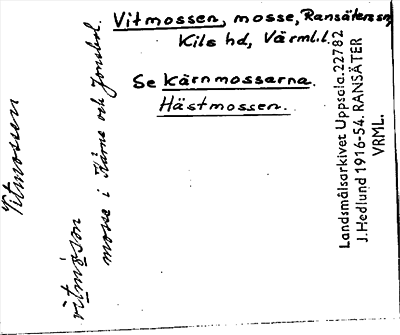 Vitmossen, mosse, Ransäters sn,
Kils hd, Värml.l.
Se kärnmossarna.
Hästmossen.
Vitmossen
vitmåsən
mosse i Kärne och Jonsbol.
Landsmålsarkivet Uppsala. 22782
J. Hedlund 1916-54. RANSÄTER
VRML.